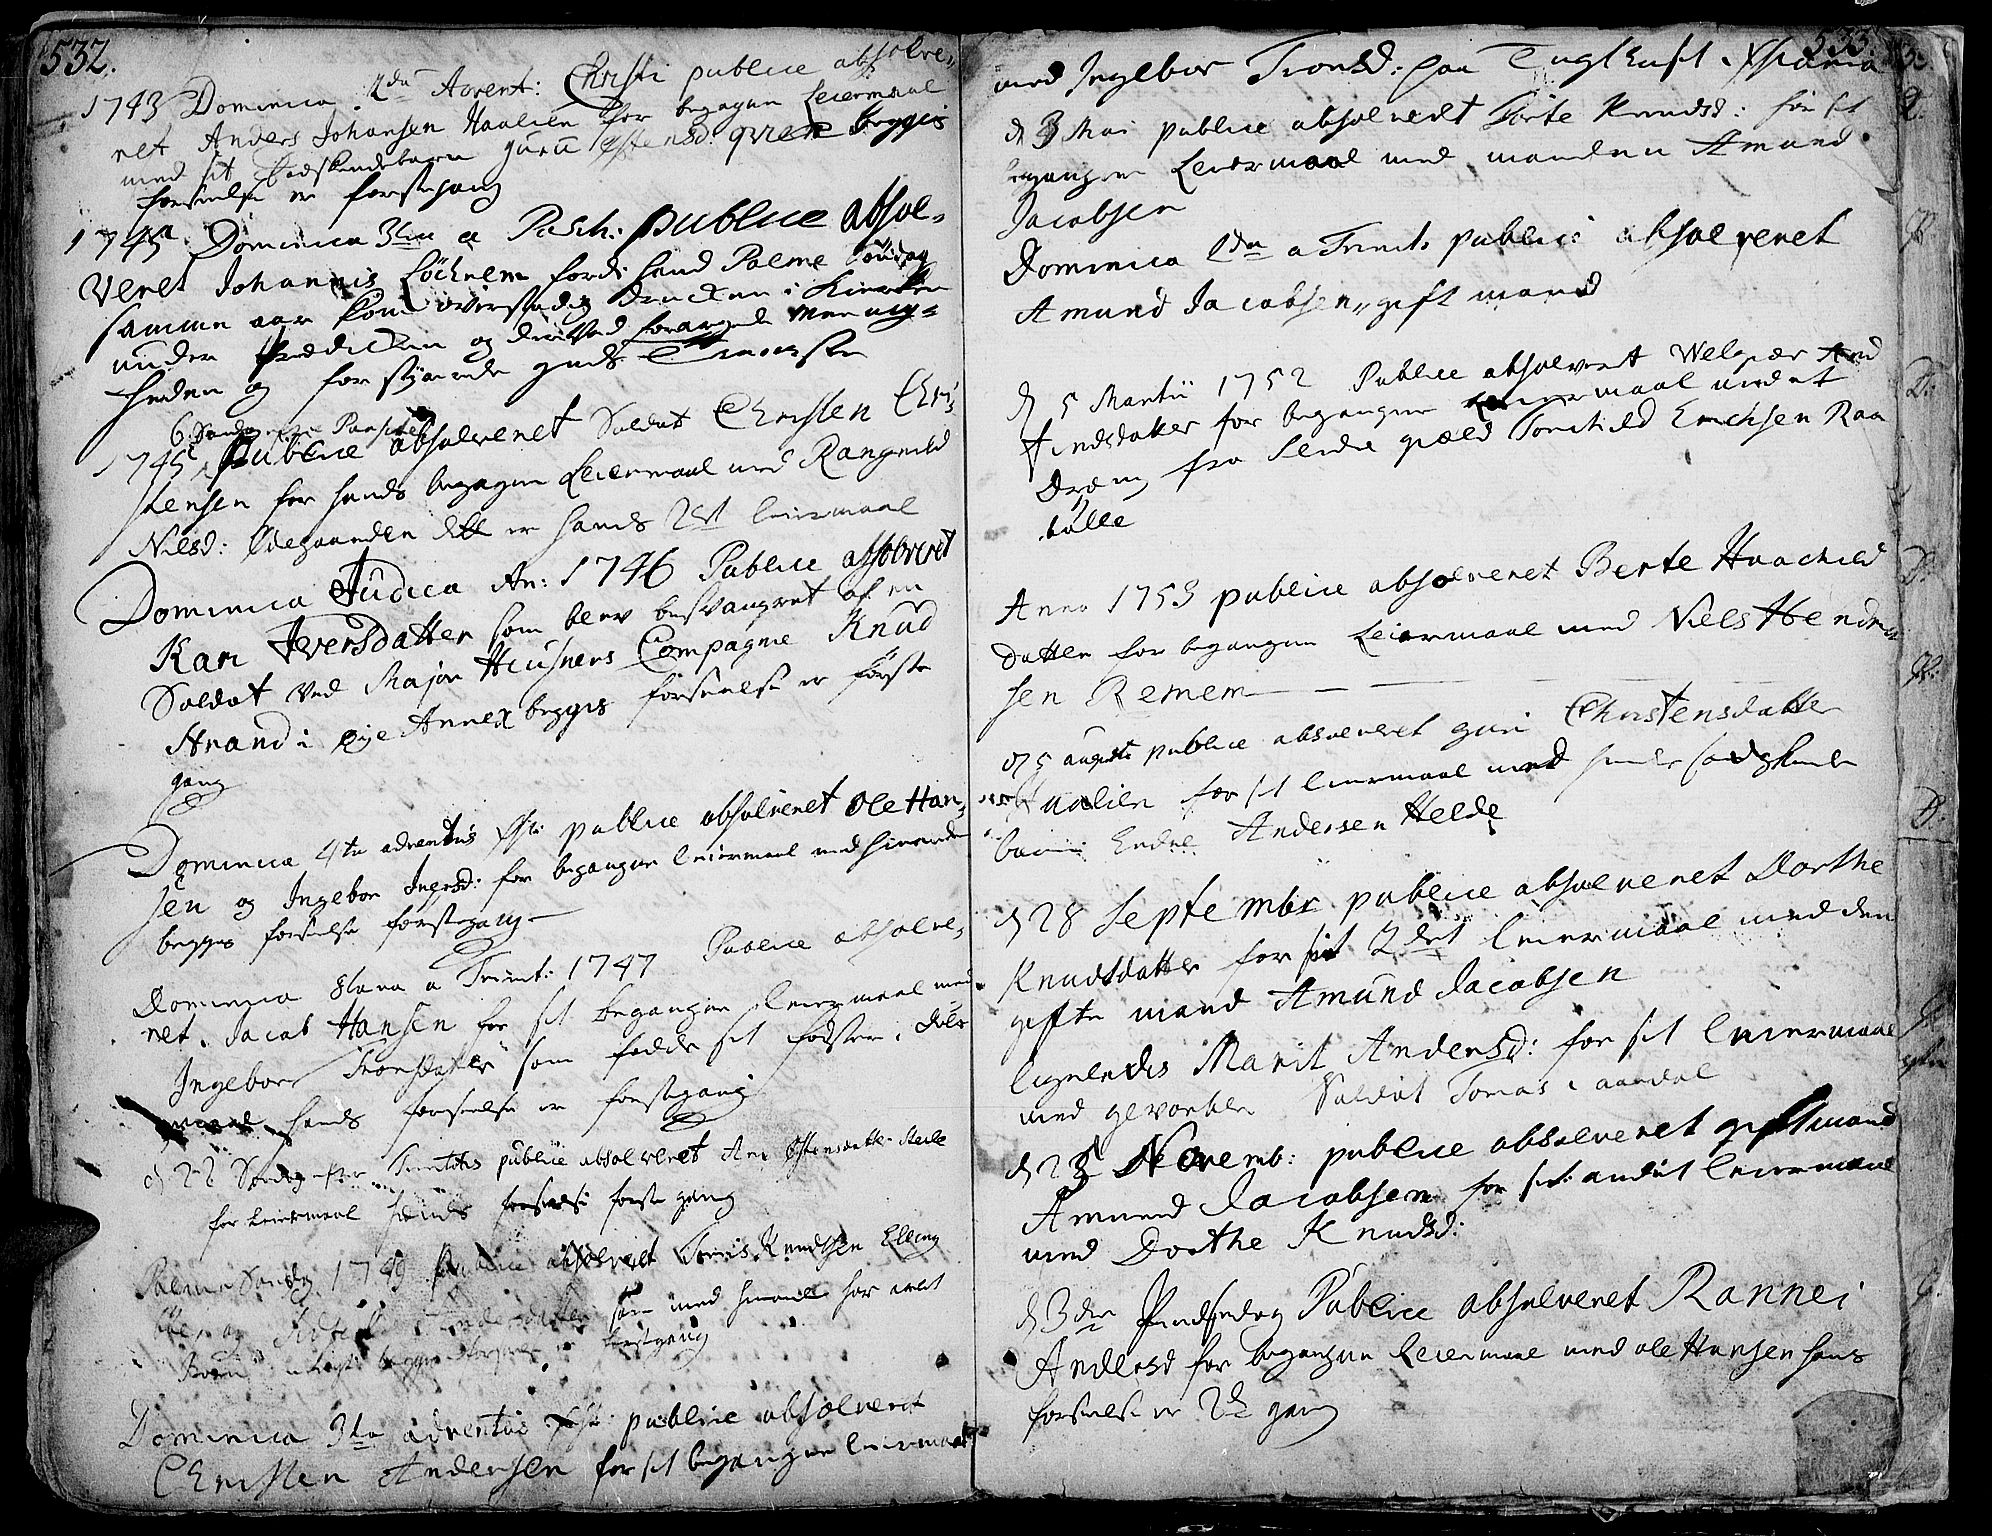 532.
1743 Dominica 2da Advent: Christi publice absolve,
ret Anders Johansen Haalien for begagen Leiermaal
med sit Sødskendebarn guru begges
forseelse er førstegang
1745 Dominica 3tia a Pasch: publice absol-
veret Johannis Løchnem fordi hand Palme Søndag
samme aar kom overstadig drucken i Kircken
under Prædicken og derved forargede Meenig-
heden og forstyrrede guds Tieneste
6 Søndag
1745 publice absolveret Soldat Christen Chri-
stensen for hands begagen Leiermaal med Rangnild
Nilsd: dette er hands 2det leiermaal
Dominica Judica An: 1746 Publice absolveret
Kari Iversdatter som blev besvangret af en
Soldat ved Major Heusners Compagnie Knud
Strand i Øye Annex begges forseelse er første
gang
Dominica 4ta adventus Xsti publice absolveret Ole Han,
sen og Ingebor for begangen leiermaal med hinanden
begges forseelse førstegang
Dominica 8tava a Trinit: 1747 Publice absolve,
ret Jacob Hansen for sit begangen leiermaal med
Ingebor Tronsdatter som fødde sit foster i
hands forseelse er førstegang
d 22 Søndag efter Trinitatis publice absolveret Ane Østensdatter
for Leiermaal hendes forseelse første gang
Palme Søndag 1749 Publice absolveret Knudsen Elling
og som med hinanden har avlet
Barn begges er førstgang
Dominica 3tia adventus Xsti publice absolveret
Christen Andersen for sit begangen leiermaal
533.
med Ingebor Tronsd: paa
d 3 Mai publice absolveret Dorte Knudsd: for sit
begangen Leiermaal med manden Amund
Jacobsen
Dominica 2da a Trinit: publice absolveret
Amund Jacobsen, gift mand
d 5 Martii 1752 Publice absolveret Welgiær
Findsdatter for begangen Leiermaal med et
Dræng fra Leirdæ gield Torchild Erichsen Raa
bølle
Anno 1753 publice absolveret Berte Haachild
datter for begangen Leiermaal med Niels Hendrich
sen Remem
d 5 augusti publice absolveret guri Christensdatter
Haalien for sit leiermaal med hendes sødskende
barn Endre Andersen Helde
d 28 Septembr publice absolveret Dorthe
Knudsdatter for sit 2det leiermaal med den
gifte mand Amund Jacobsen
ligeledes Marit Andersd: for sit leiermaal
med gevorben Soldat Tomas i aardal
d 23 Novemb: publice absolveret gift mand
Amund Jacobsen for sit andet leiermaal
med Dorthe Knudsd:
d 3die Pindsedag Publice absolveret Rannei
Andersd for begangen Leiermaal med ole Hansen hans
forseelse er 2de gang